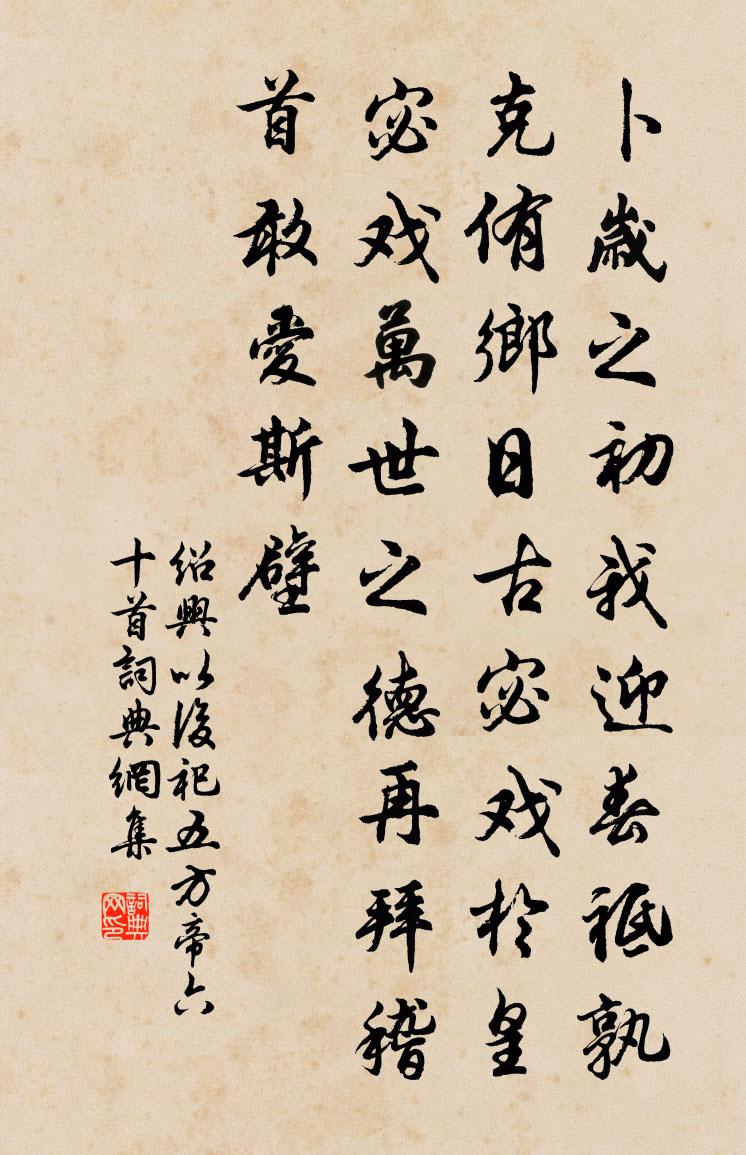 卜歲之初我迎春祗孰
克侑鄉日古宓戏於皇
宓戏萬世之德再拜稽
首敢愛斯璧
绍興以後祀五方帝六
十首詞典網集
詞典网印